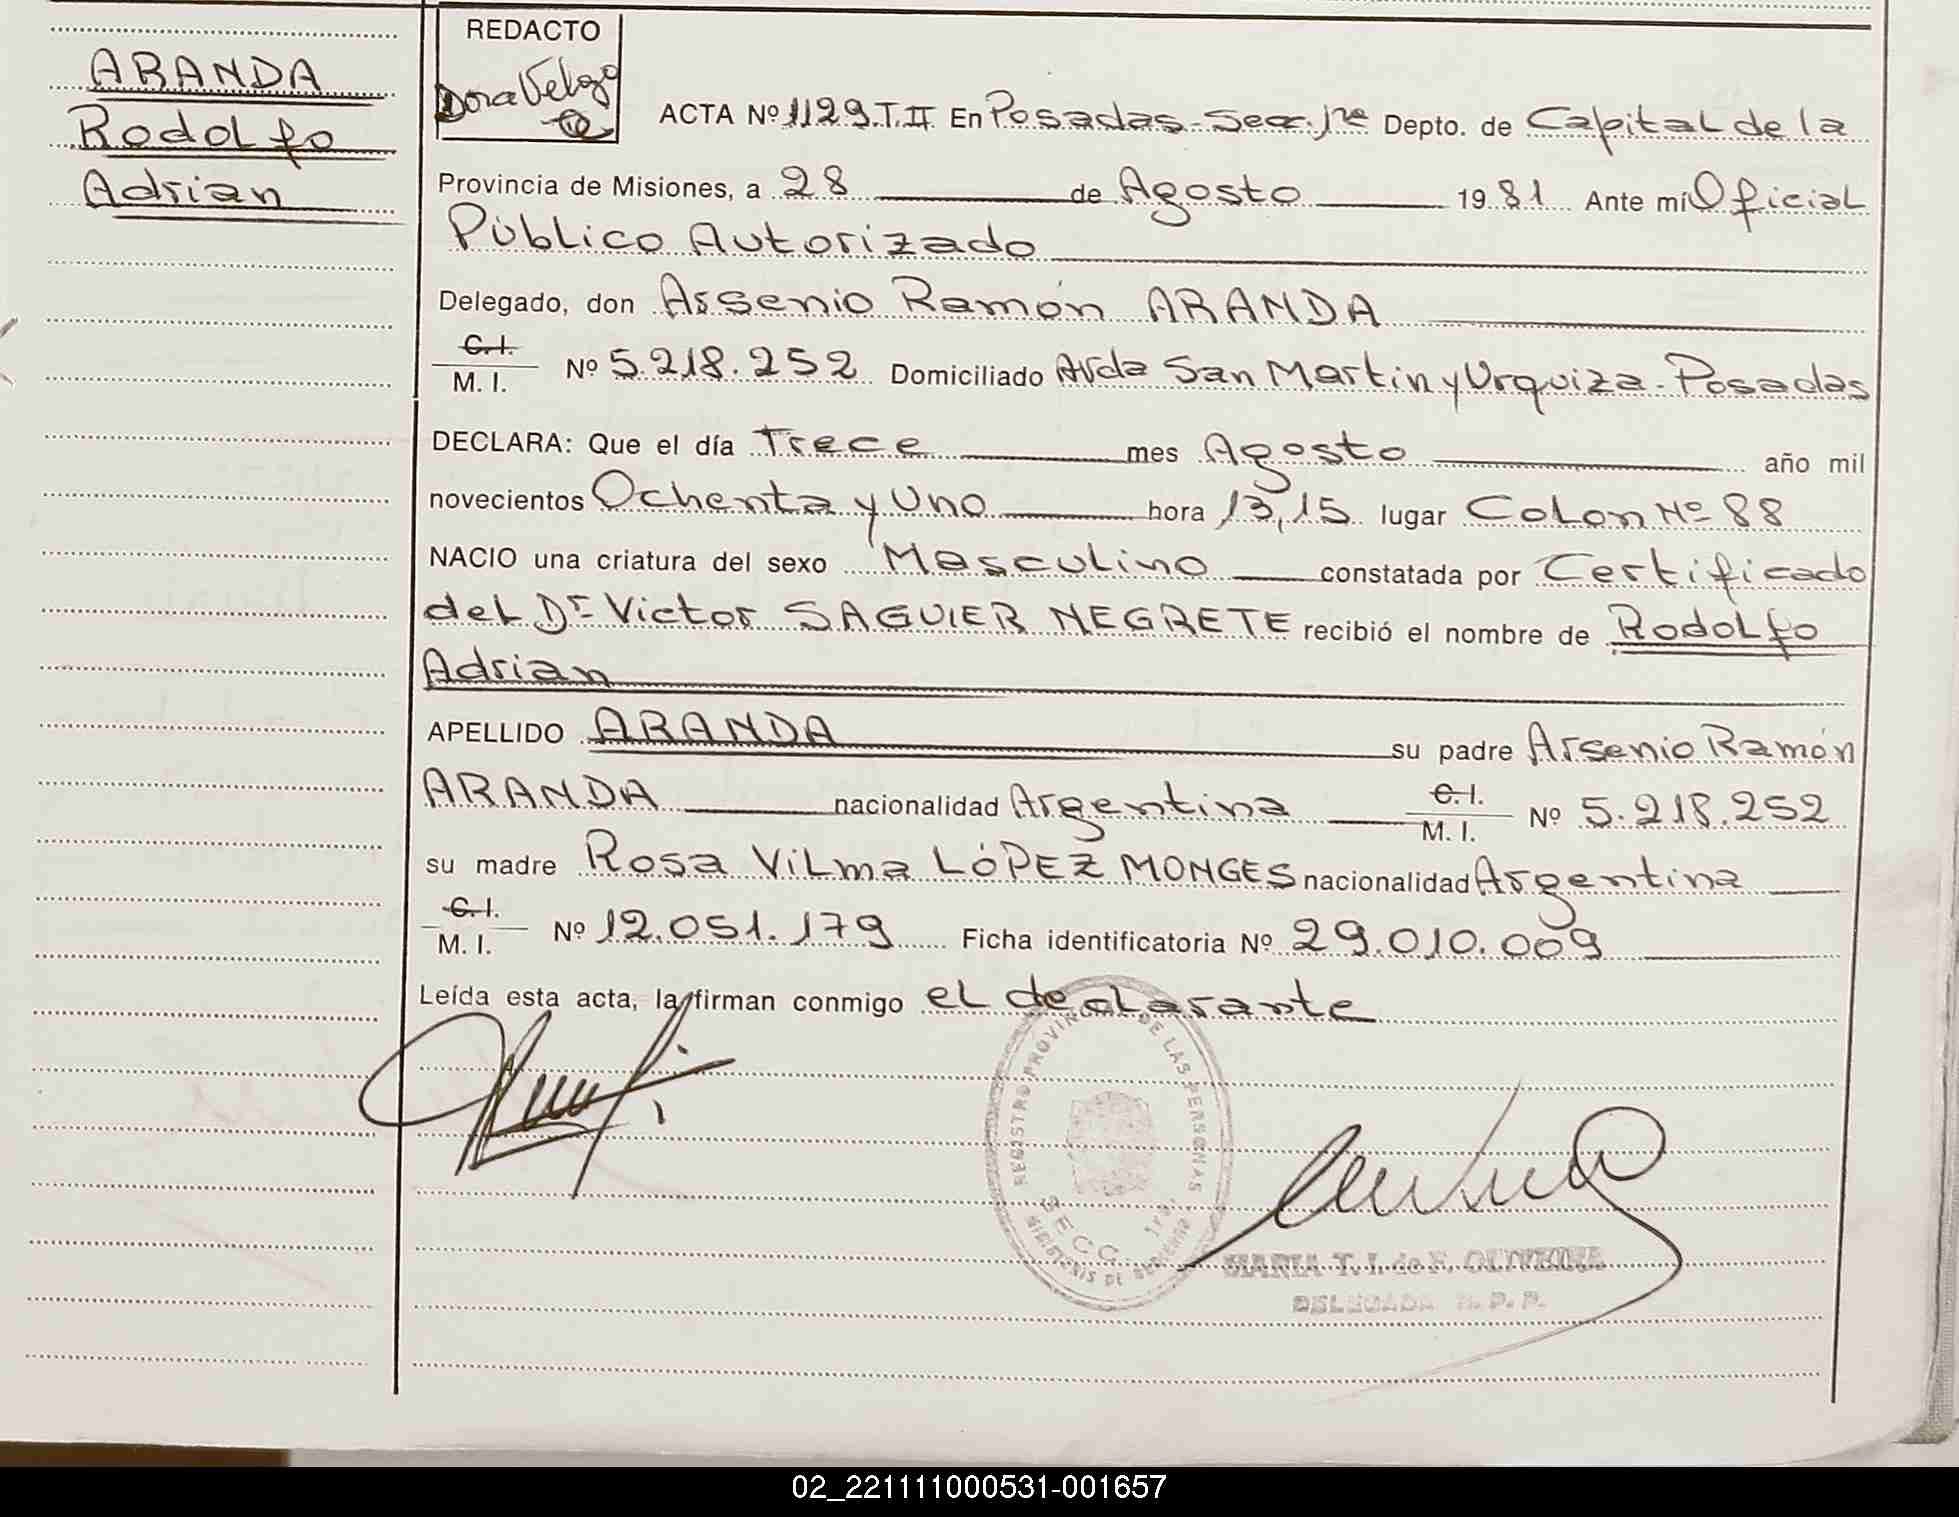 ARANDA
Rodolfo
Adrian
REDACTO
Dora Velozo
ACTA Nº 1129 T.II En Posadas - Secc. 1ra Depto. de Capital de la
Provincia de Misiones, a 28 de Agosto 1981 Ante mí Oficial
Público Autorizado
Delegado, don Arsenio Ramón ARANDA
C.I.
M. I. Nº 5.218.252 Domiciliado Avda San Martin y Urquiza - Posadas
DECLARA: Que el día Trece mes Agosto año mil
novecientos Ochenta y Uno hora 13,15 lugar Colon Nº 88
NACIO una criatura del sexo Masculino constatada por Certificado
del Dr Victor SAGUIER NEGRETE recibió el nombre de Rodolfo
Adrian
APELLIDO ARANDA su padre Arsenio Ramón
ARANDA nacionalidad Argentina C.I. M. I. Nº 5.218.252
su madre Rosa Vilma LÓPEZ MONGES nacionalidad Argentina
C.I.
M. I. Nº 12.051.179 Ficha identificatoria Nº 29.010.009
Leída esta acta, la firman conmigo el declarante
REGISTRO PROVINCIAL DE LAS PERSONAS
SECC. 1ra.
MINISTERIO DE GOBIERNO
MARIA T. I. de F. OLIVEIRA
DELEGADA R. P. P.
02_221111000531-001657